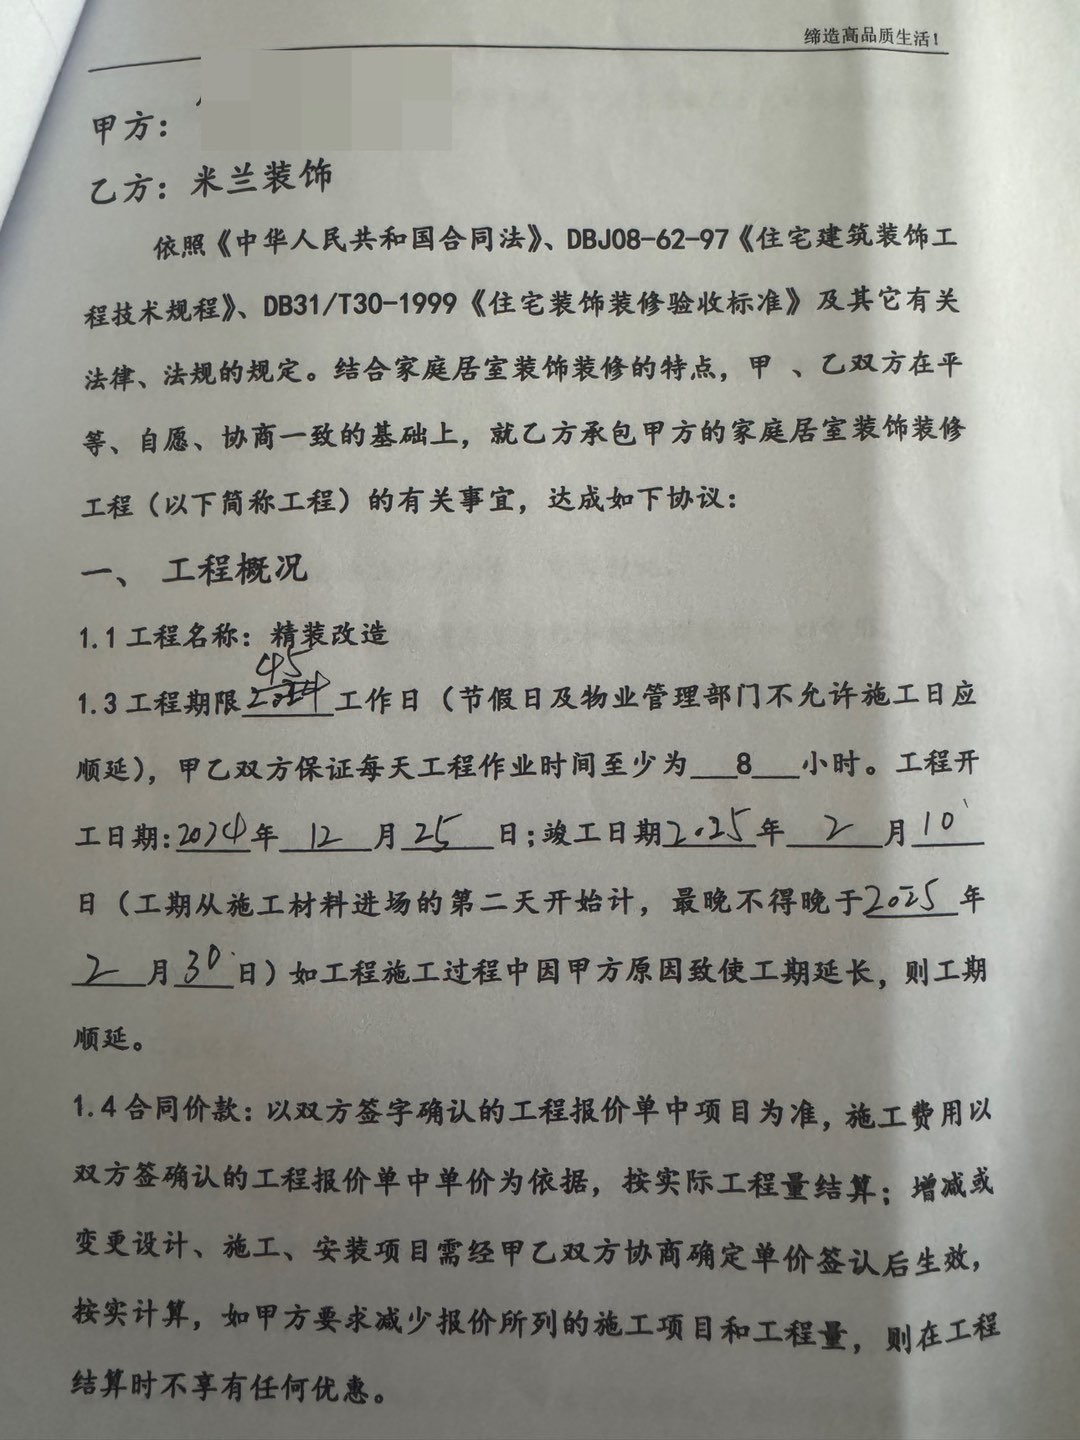 缔造高品质生活！
甲方：
乙方：米兰装饰
依照《中华人民共和国合同法》、DBJ08-62-97《住宅建筑装饰工
程技术规程》、DB31/T30-1999《住宅装饰装修验收标准》及其它有关
法律、法规的规定。结合家庭居室装饰装修的特点，甲 、乙双方在平
等、自愿、协商一致的基础上，就乙方承包甲方的家庭居室装饰装修
工程（以下简称工程）的有关事宜，达成如下协议：
一、 工程概况
1.1 工程名称：精装改造
45
1.3 工程期限2024工作日（节假日及物业管理部门不允许施工日应
顺延），甲乙双方保证每天工程作业时间至少为 8 小时。工程开
工日期：2024年 12 月 25 日；竣工日期2025年 2 月 10
日（工期从施工材料进场的第二天开始计，最晚不得晚于2025年
2 月 30 日）如工程施工过程中因甲方原因致使工期延长，则工期
顺延。
1.4 合同价款：以双方签字确认的工程报价单中项目为准，施工费用以
双方签确认的工程报价单中单价为依据，按实际工程量结算；增减或
变更设计、施工、安装项目需经甲乙双方协商确定单价签认后生效，
按实计算，如甲方要求减少报价所列的施工项目和工程量，则在工程
结算时不享有任何优惠。